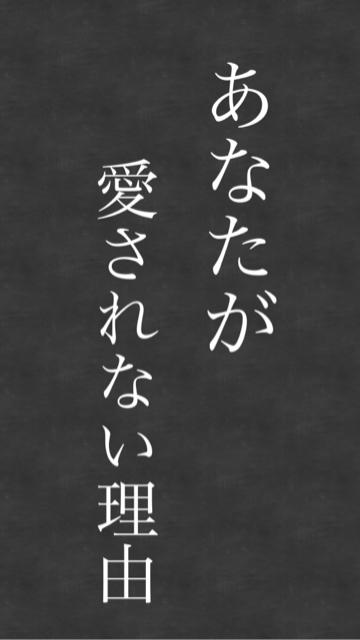 あなたが
愛されない理由